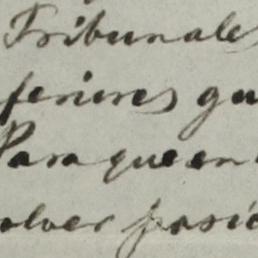 Tribunales
feriores qu
Para que en
olver pasic